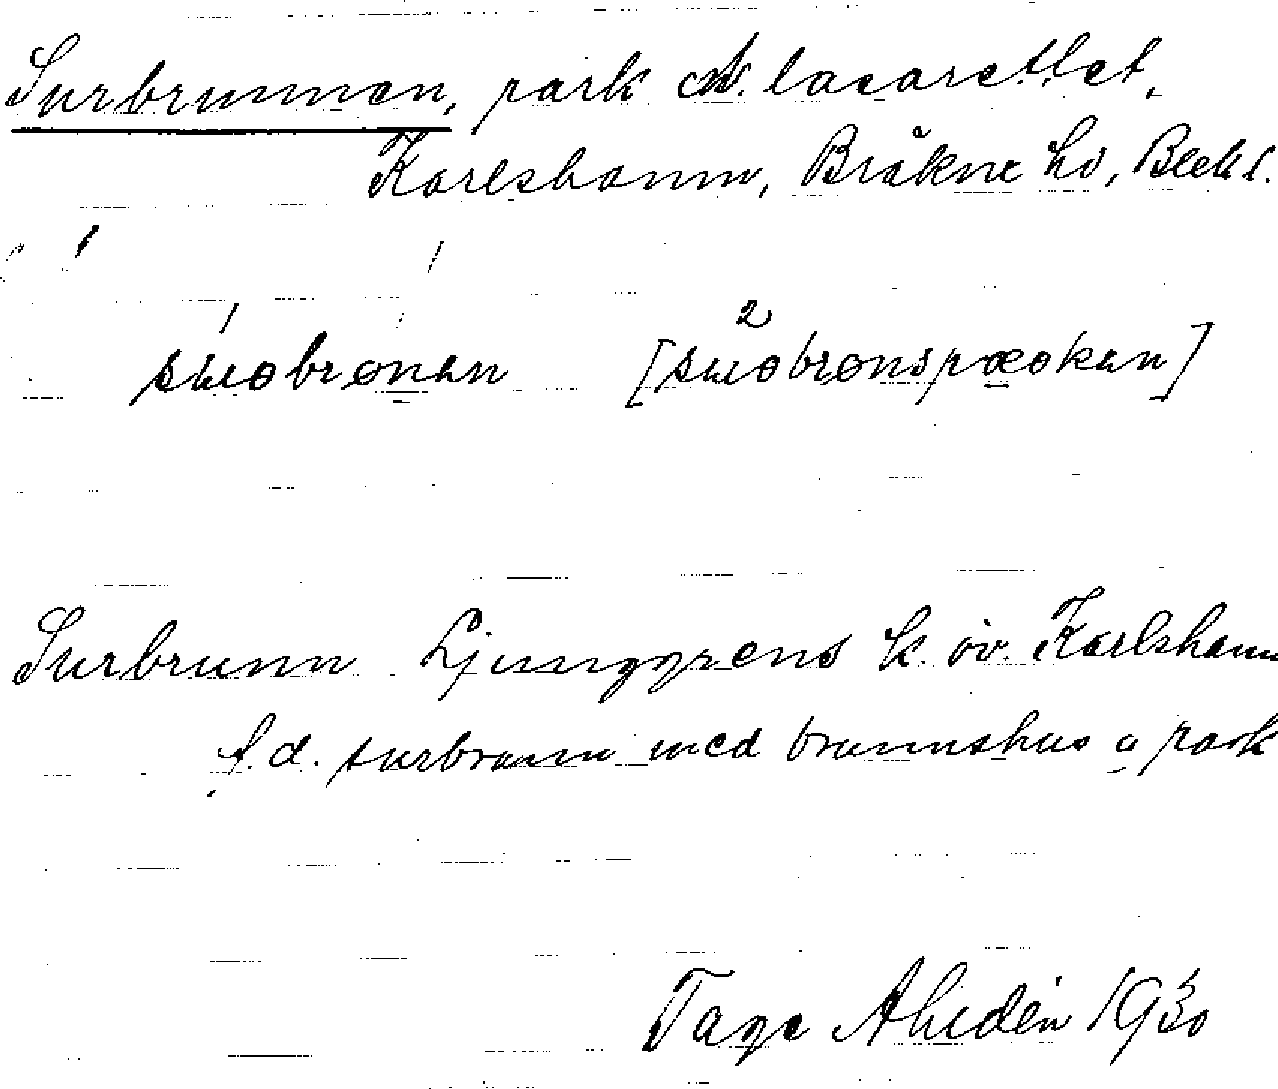 Surbrunnen, park v. lasarettet,
Karlshamn, Bräkne hd, Blek l.
sʉrobrønən [sʉəbrønspæokən]
Surbrunn Ljunggrens k. öv. Karlshamn
f.d. surbrunn med brunnshus o park
Tage Ahldén 1930